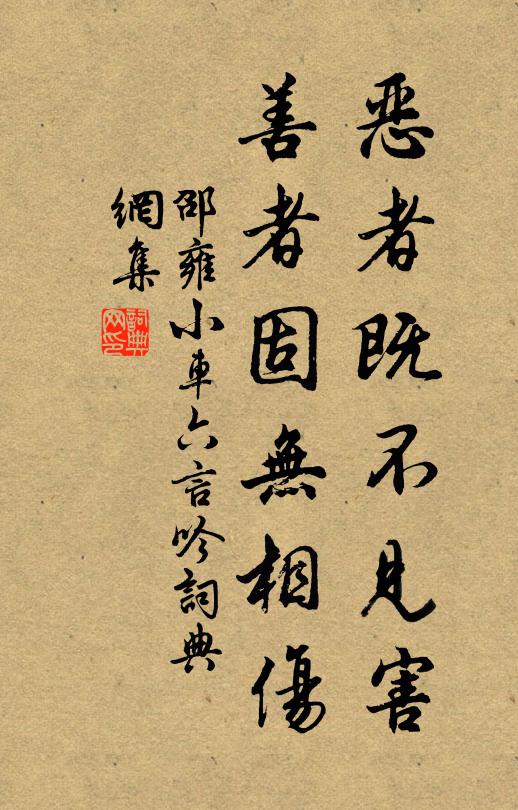 恶者既不見害
善者固無相傷
邵雍小車六言吟詞典
網集
詞典网印